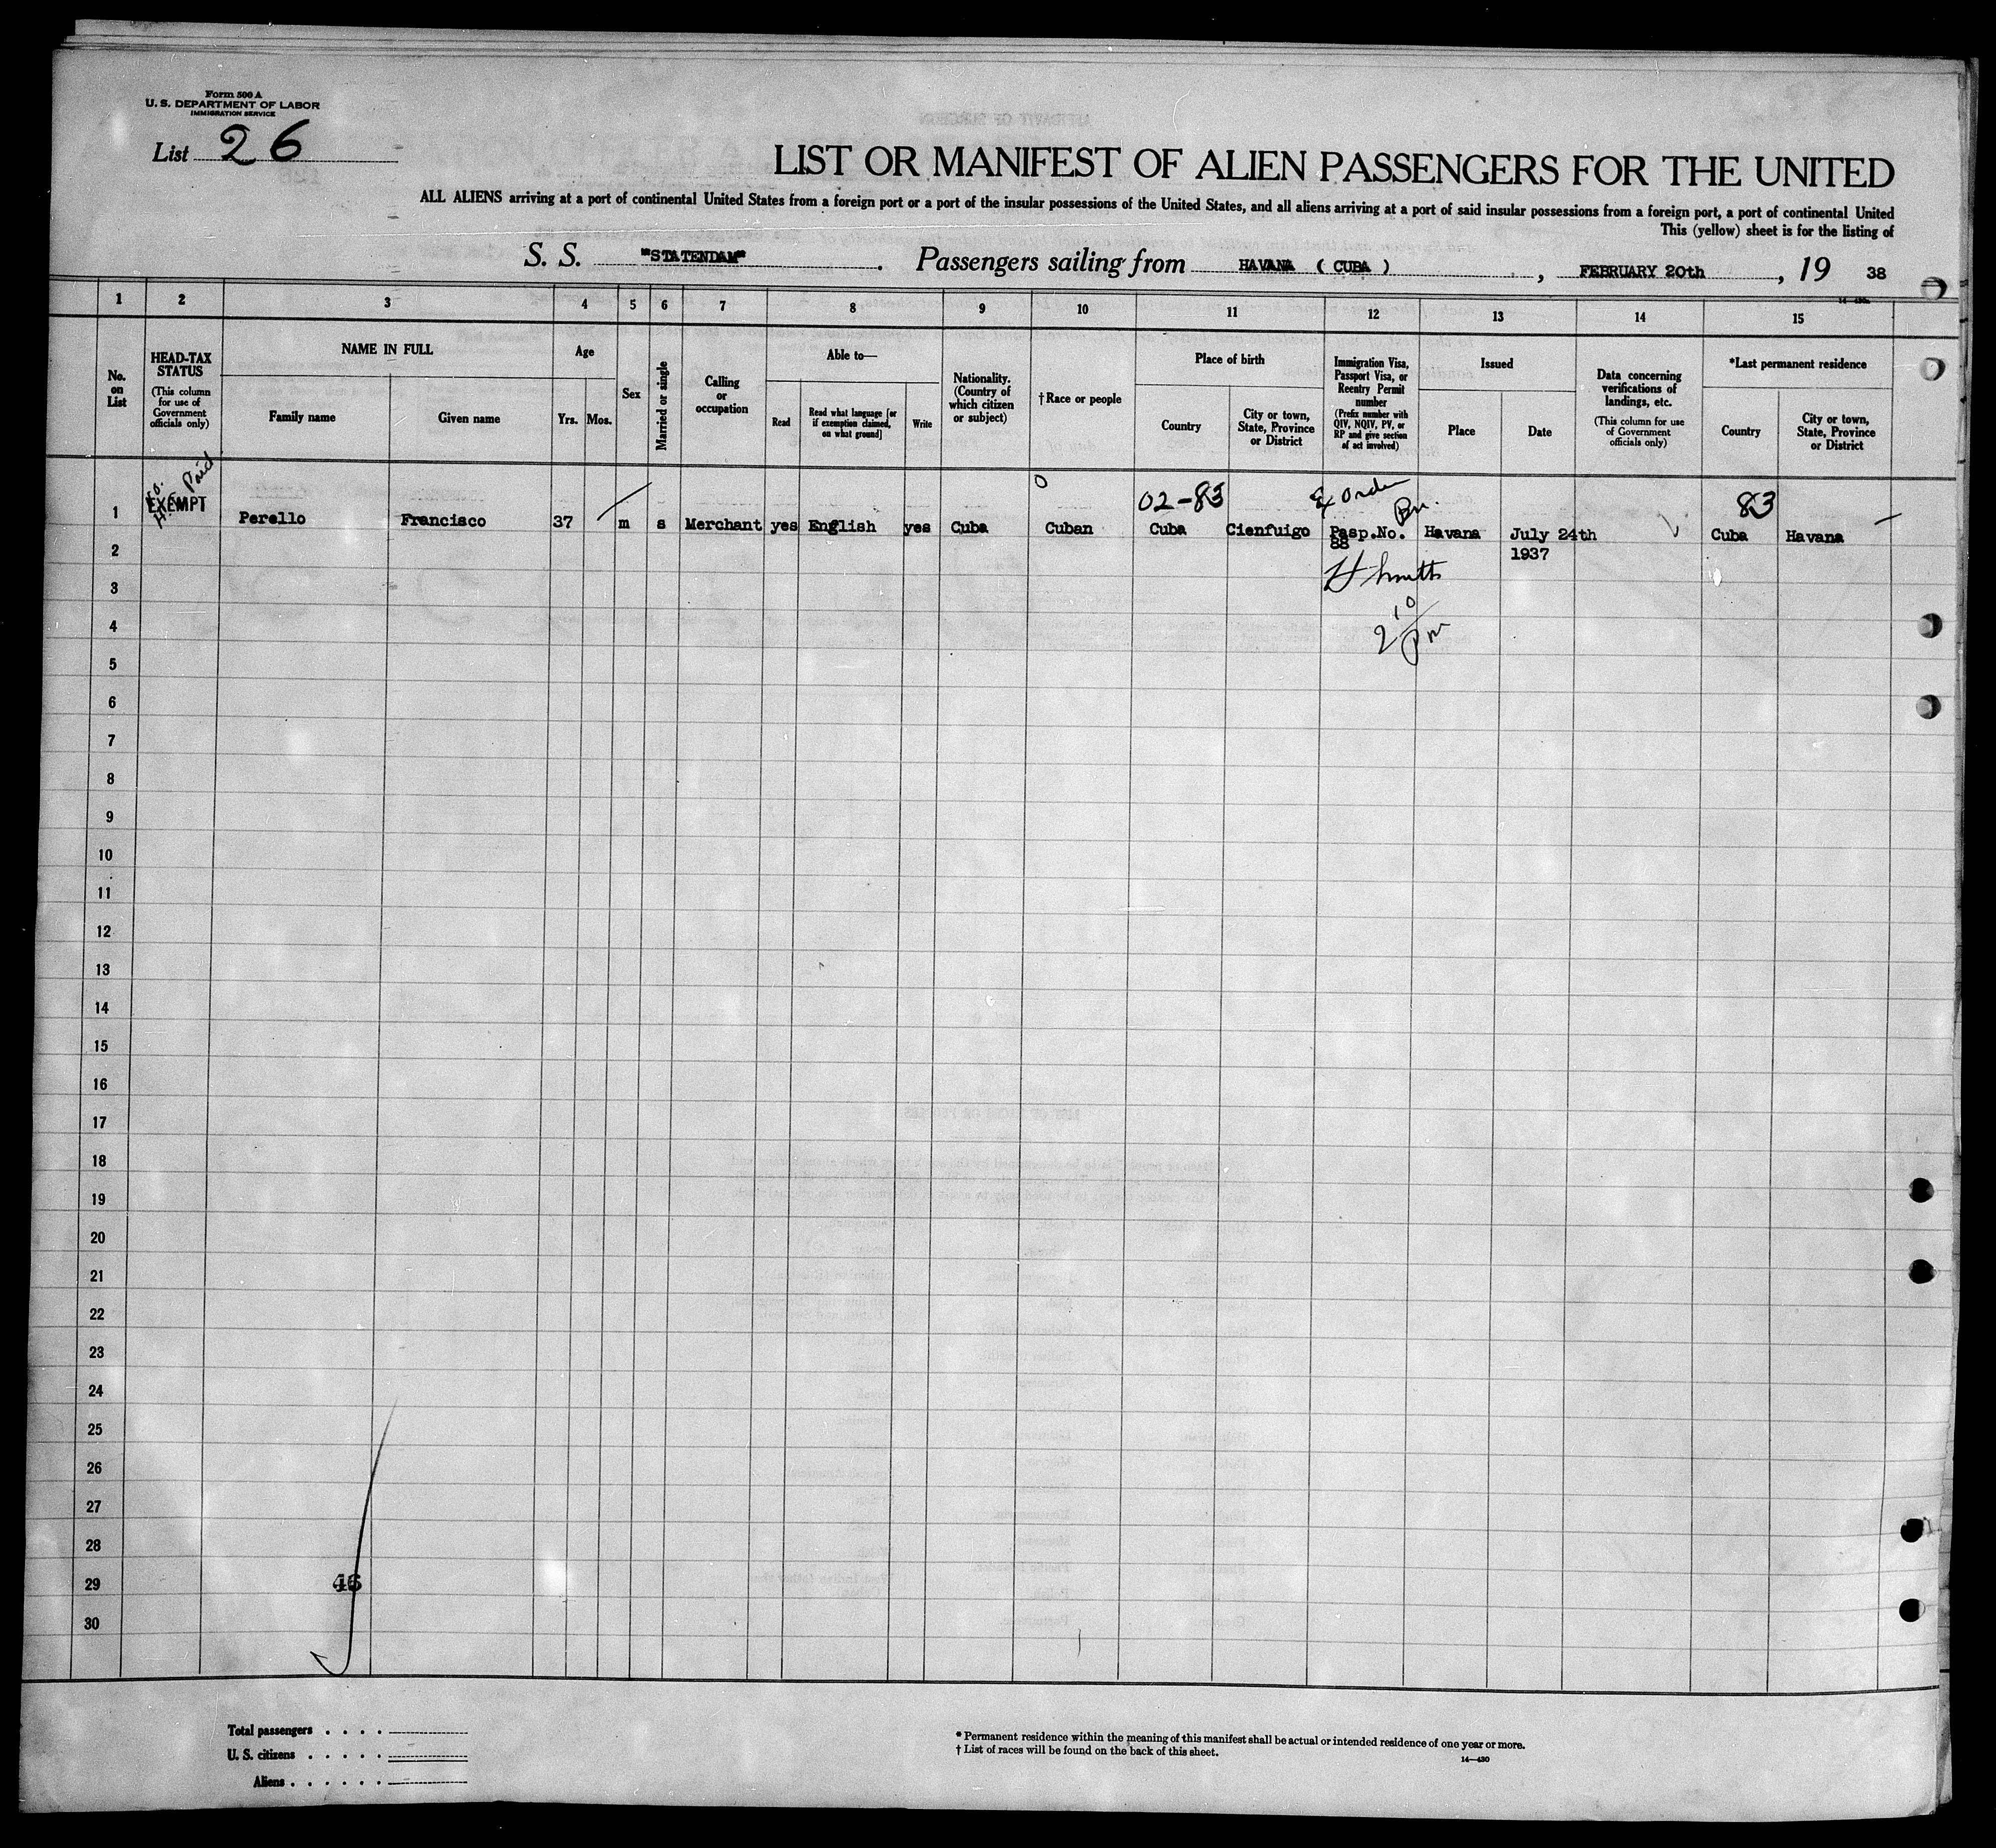 Form 500 A
U. S. DEPARTMENT OF LABOR
IMMIGRATION SERVICE
List 26
LIST OR MANIFEST OF ALIEN PASSENGERS FOR THE UNITED
ALL ALIENS arriving at a port of continental United States from a foreign port or a port of the insular possessions of the United States, and all aliens arriving at a port of said insular possessions from a foreign port, a port of continental United
This (yellow) sheet is for the listing of
S. S. "STATENDAM". Passengers sailing from HAVANA ( CUBA ), FEBRUARY 20th, 19 38
1 2 3 4 5 6 7 8 9 10 11 12 13 14 15
No. on List
HEAD-TAX STATUS
(This column for use of Government officials only)
NAME IN FULL
Family name
Given name
Age
Yrs.
Mos.
Sex
Married or single
Calling or occupation
Able to—
Read
Read what language [or if exemption claimed, on what ground]
Write
Nationality. (Country of which citizen or subject)
†Race or people
Place of birth
Country
City or town, State, Province or District
Immigration Visa, Passport Visa, or Reentry Permit number
(Prefix number with QIV, NQIV, PV, or RP and give section of act involved)
Issued
Place
Date
Data concerning verifications of landings, etc.
(This column for use of Government officials only)
*Last permanent residence
Country
City or town, State, Province or District
Paid
02-83
Ex Order
83
1 EXEMPT Perello Francisco 37 m s Merchant yes English yes Cuba Cuban Cuba Cienfuigo Pasp.No. Havana July 24th Cuba Havana
2 88 1937
3
4 2 10
pm
5
6
7
8
9
10
11
12
13
14
15
16
17
18
19
20
21
22
23
24
25
26
27
28
29
30
Total passengers
U. S. citizens
Aliens
* Permanent residence within the meaning of this manifest shall be actual or intended residence of one year or more.
† List of races will be found on the back of this sheet.
14—430